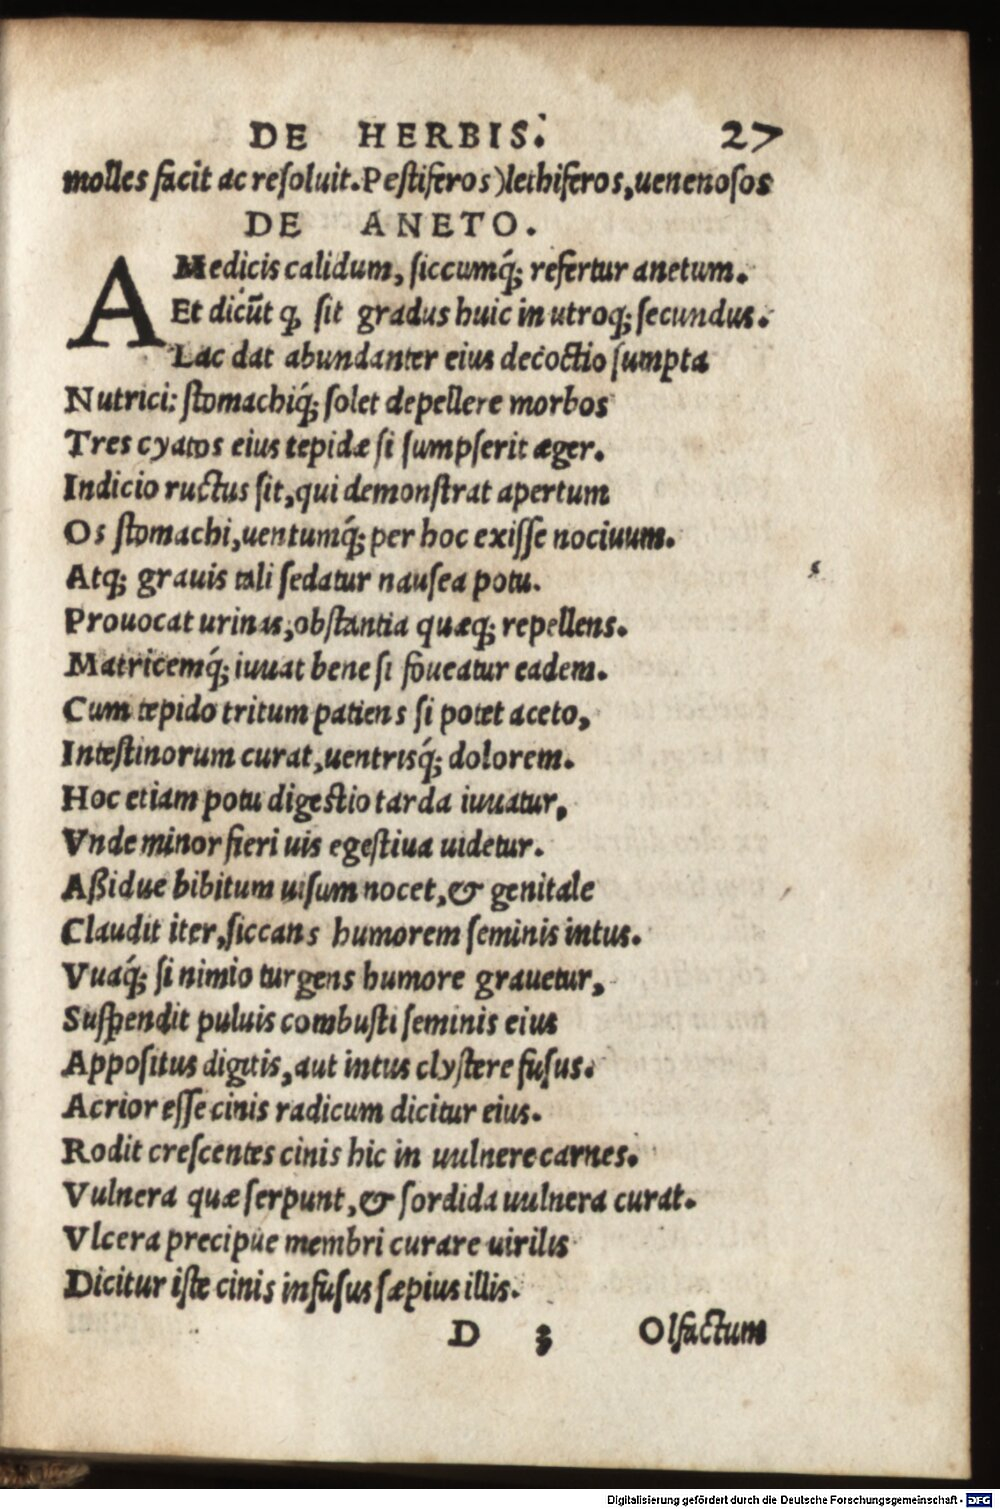 DE HERBIS. 27
molles facit ac resoluit. Pestiferos) lethiferos, uenenosos
DE ANETO.
A Medicis calidum, siccumq́; refertur anetum.
Et dicũt q̃ sit gradus huic in utroq; secundus.
Lac dat abundanter eius decoctio sumpta
Nutrici: stomachiq́; solet depellere morbos
Tres cyatos eius tepidæ si sumpserit æger.
Indicio ructus sit, qui demonstrat apertum
Os stomachi, uentumq́; per hoc exisse nociuum.
Atq; grauis tali sedatur nausea potu.
Prouocat urinas, obstantia quæq; repellens.
Matricemq́; iuuat bene si foueatur eadem.
Cum tepido tritum patiens si potet aceto,
Intestinorum curat, uentrisq́; dolorem.
Hoc etiam potu digestio tarda iuuatur,
Vnde minor fieri uis egestiua uidetur.
Aßidue bibitum uisum nocet, & genitale
Claudit iter, siccans humorem seminis intus.
Vuaq́; si nimio turgens humore grauetur,
Suspendit puluis combusti seminis eius
Appositus digitis, aut intus clystere fusus.
Acrior esse cinis radicum dicitur eius.
Rodit crescentes cinis hic in uulnere carnes.
Vulnera quæ serpunt, & sordida uulnera curat.
Vlcera precipue membri curare uirilis
Dicitur iste cinis infusus sæpius illis.
D 3 Olfactum
Digitalisierung gefördert durch die Deutsche Forschungsgemeinschaft - DFG